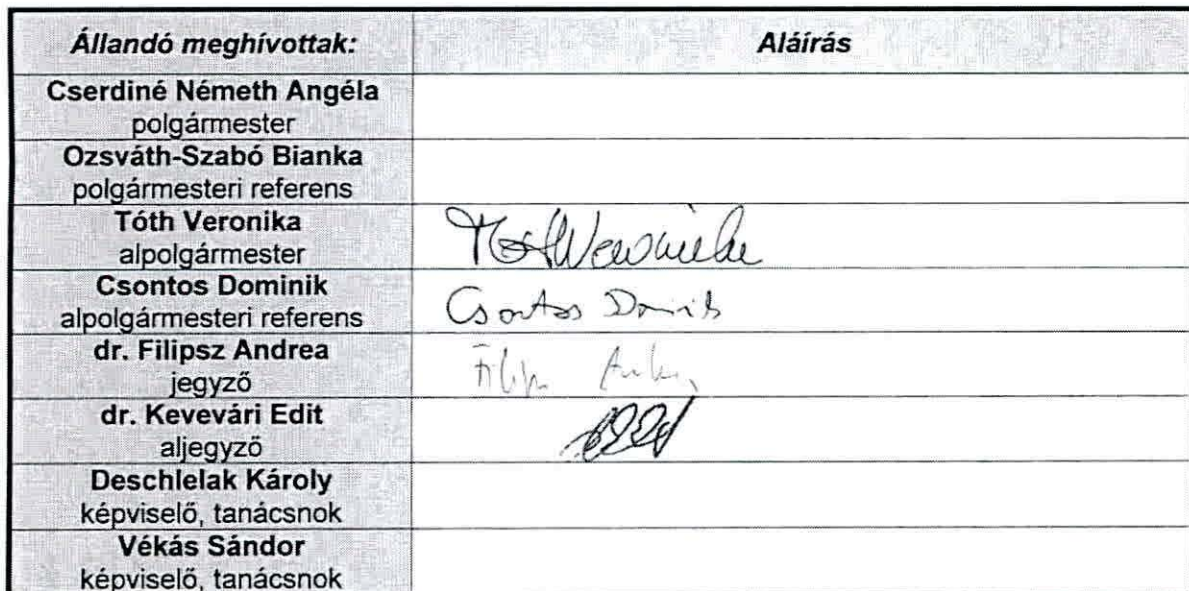 Állandó meghívottak: Aláírás
Cserdiné Németh Angéla
polgármester
Ozsváth-Szabó Bianka
polgármesteri referens
Tóth Veronika
alpolgármester
Tóth Veronika
Csontos Dominik
alpolgármesteri referens
Csontos Dominik
dr. Filipsz Andrea
jegyző
dr. Kevevári Edit
aljegyző
Deschlelak Károly
képviselő, tanácsnok
Vékás Sándor
képviselő, tanácsnok